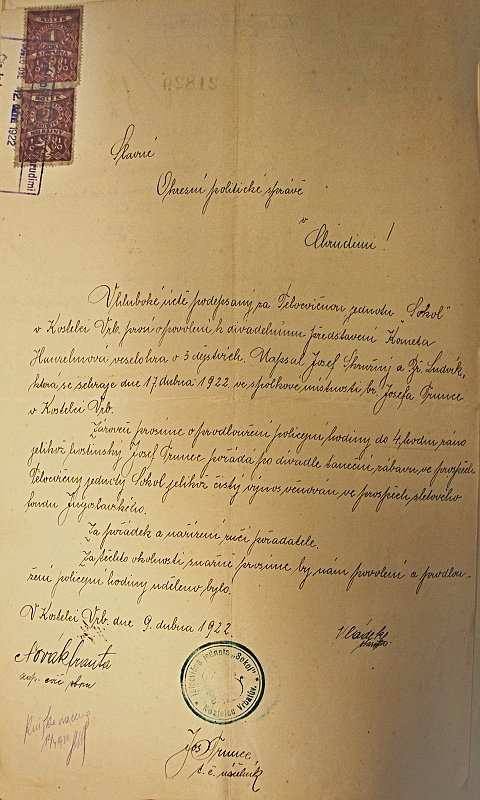 KOLEK
1
KORUNA
KOLEK
2
KORUNY
12. 1922
21820
Slavné
Okresní politické správě
v
Chrudimi!
V hluboké úctě podepsaný za Tělocvičnou jednotu „Sokol"
v Kostelci Vrb. prosí o povolení k divadelnímu představení Korneta
Hanzelmová veselohra o 3 dějstvích. Napsal Josef Skružný a Fr. Ludvík,
která se sehraje dne 17 dubna 1922. ve spolkové místnosti br. Josefa Trunce
v Kostelci Vrb.
Zároveň prosíme o prodloužení policejní hodiny do 4 hodin ráno
jelikož hostinský Josef Trunec pořádá po divadle taneční zábavu, ve prospěch
Tělocvičny jednoty Sokol jelikož čistý výnos věnován ve prospěch sletového
fondu Jugoslavského.
Za pořádek a nařízení ručí pořadatele.
Za těchto okolností snažně prosíme by nám povolení a prodlou-
žení policejní hodiny uděleno bylo.
V Kostelci Vrb. dne 9. dubna 1922.
Novák Franta
Tělocvičná jednota „Sokol"
Kostelec
Jos Trunec
t. č. náčelník